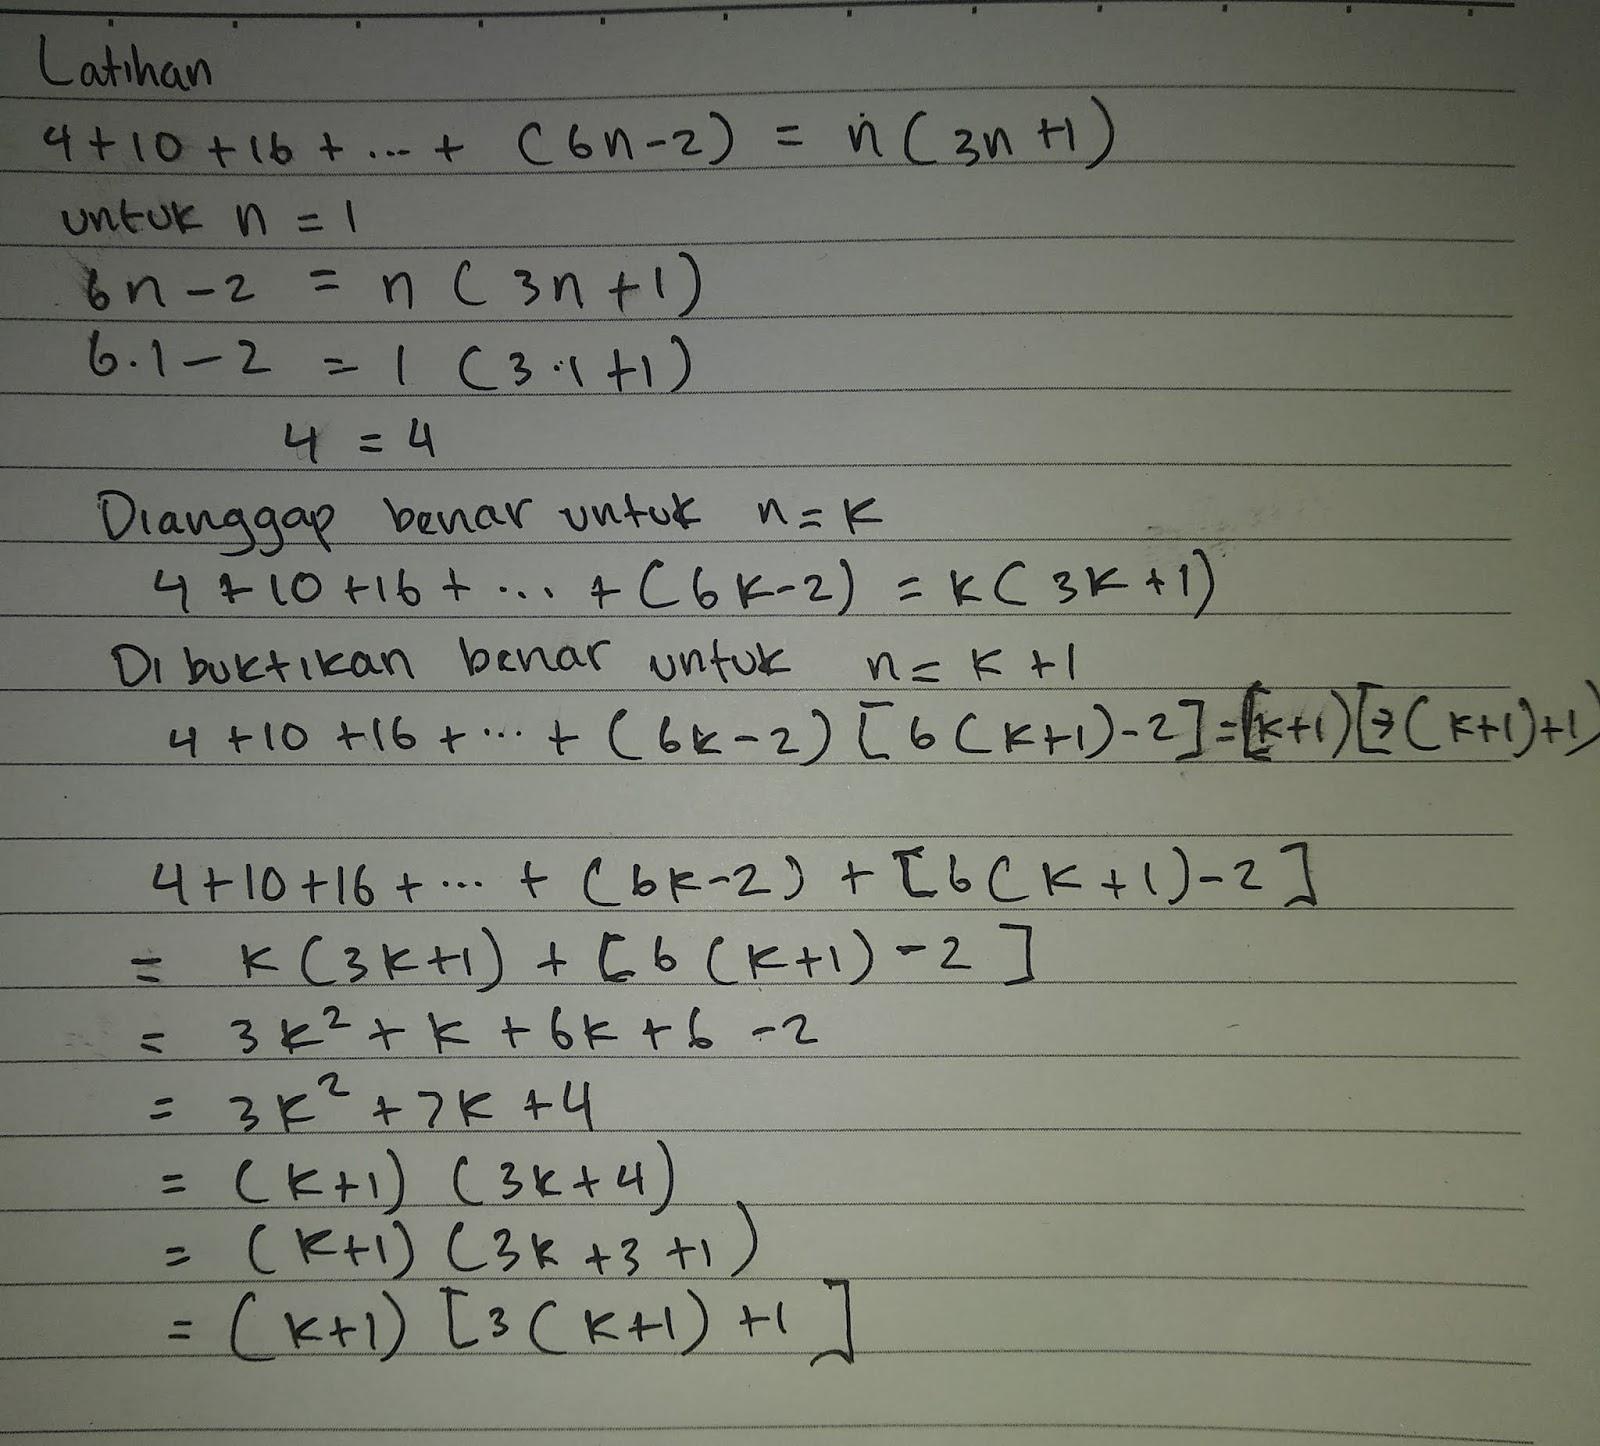 Latihan
4 + 10 + 16 + ... + (6n - 2) = n (3n + 1)
untuk n = 1
6n - 2 = n (3n + 1)
6.1 - 2 = 1 (3.1 + 1)
4 = 4
Dianggap benar untuk n = k
4 + 10 + 16 + ... + (6k - 2) = k (3k + 1)
Dibuktikan benar untuk n = k + 1
4 + 10 + 16 + ... + (6k - 2) [6(k+1) - 2] = [k+1) [3(k+1)+1)
4 + 10 + 16 + ... + (6k - 2) + [6(k + 1) - 2]
= k (3k+1) + [6(k+1) - 2]
= 3k² + k + 6k + 6 - 2
= 3k² + 7k + 4
= (k+1) (3k + 4)
= (k+1) (3k + 3 + 1)
= (k+1) [3(k+1) + 1]